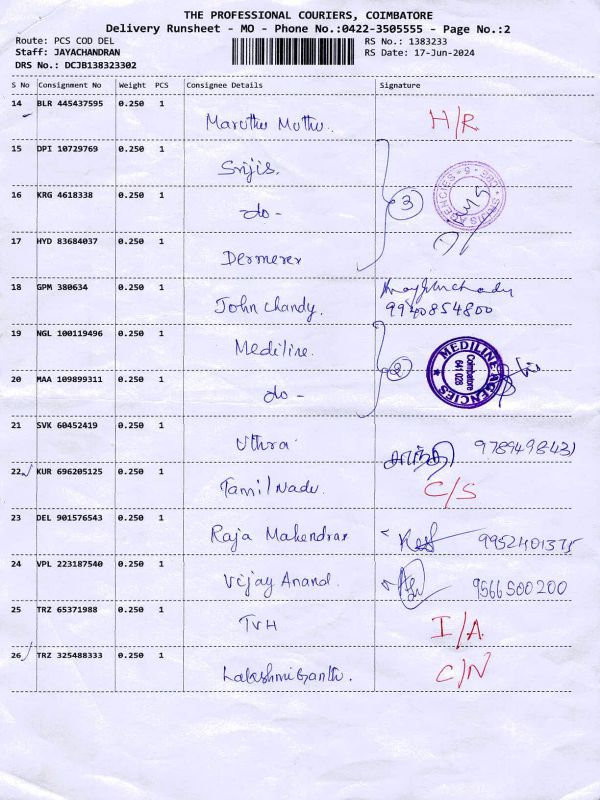 THE PROFESSIONAL COURIERS, COIMBATORE
Delivery Runsheet - MO - Phone No.:0422-3505555 - Page No.:2
Route: PCS COD DEL
Staff: JAYACHANDRAN
DRS No.: DCJB138323302
RS No.: 1383233
RS Date: 17-Jun-2024
S No Consignment No Weight PCS Consignee Details Signature
14 BLR 445437595 0.250 1 Maruthu Muthu. H/R
15 DPI 10729769 0.250 1 Srijis.
16 KRG 4618338 0.250 1 do - 3
17 HYD 83684037 0.250 1 Dermerex
18 GPM 380634 0.250 1 John Chandy. 9940854800
19 NGL 100119496 0.250 1 Mediline.
20 MAA 109899311 0.250 1 do - 2
MEDILINE AGENCIES
Coimbatore
641 028
21 SVK 60452419 0.250 1 Uthra. சாந்தி 9789498431
22 KUR 696205125 0.250 1 Tamil Nadu. C/S
23 DEL 901576543 0.250 1 Raja Mahendran 9952401375
24 VPL 223187540 0.250 1 Vijay Anand. 9566500200
25 TRZ 65371988 0.250 1 TVH I/A
26 TRZ 325488333 0.250 1 Lakshmi Ganth. C/N